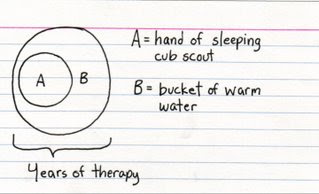 A = hand of sleeping
cub scout
A B
B = bucket of warm
water
years of therapy